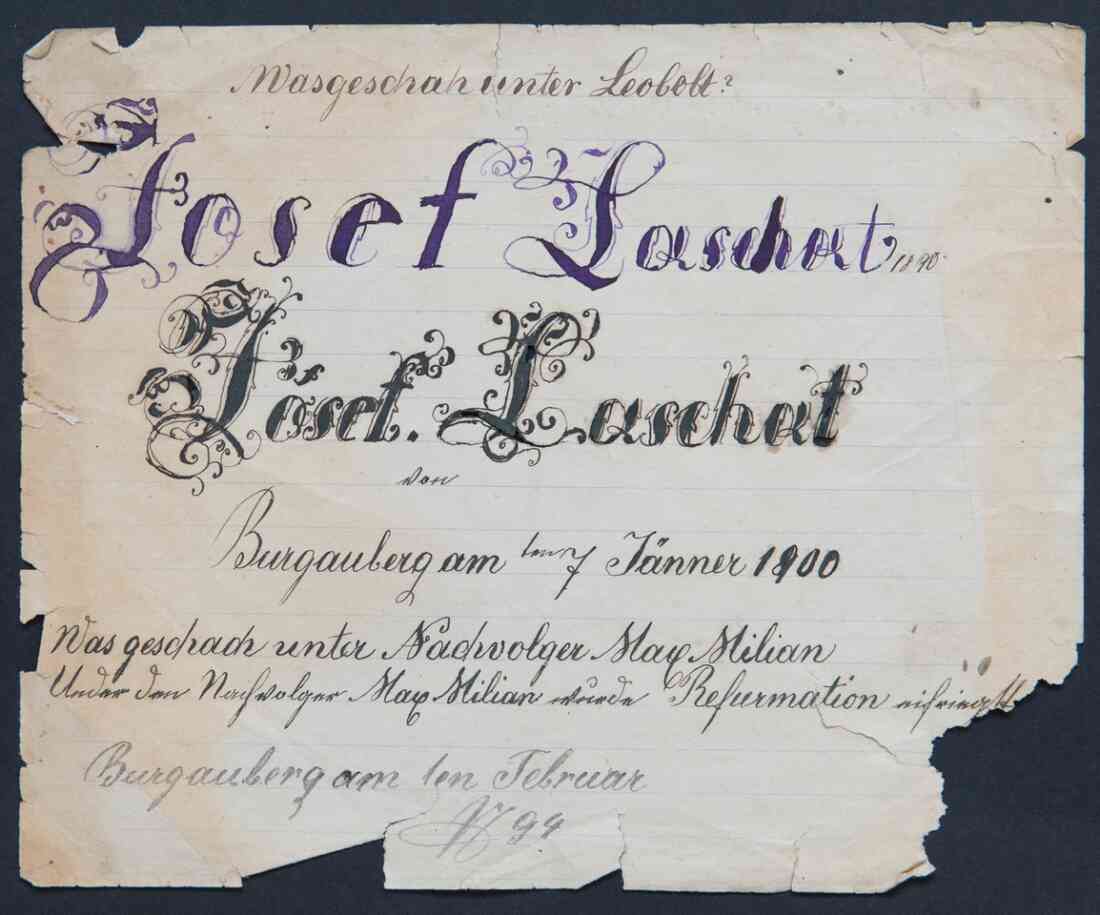 Was geschah unter Leobolt?
Josef Laschat 1890
Josef. Laschat
von
Burgauberg am ten 7 Jänner 1900
Was geschach unter Nachvolger Max Milian
Under den Nachvolger Max Milian wurde Refurmation
Burgauberg am 1en Februar
94